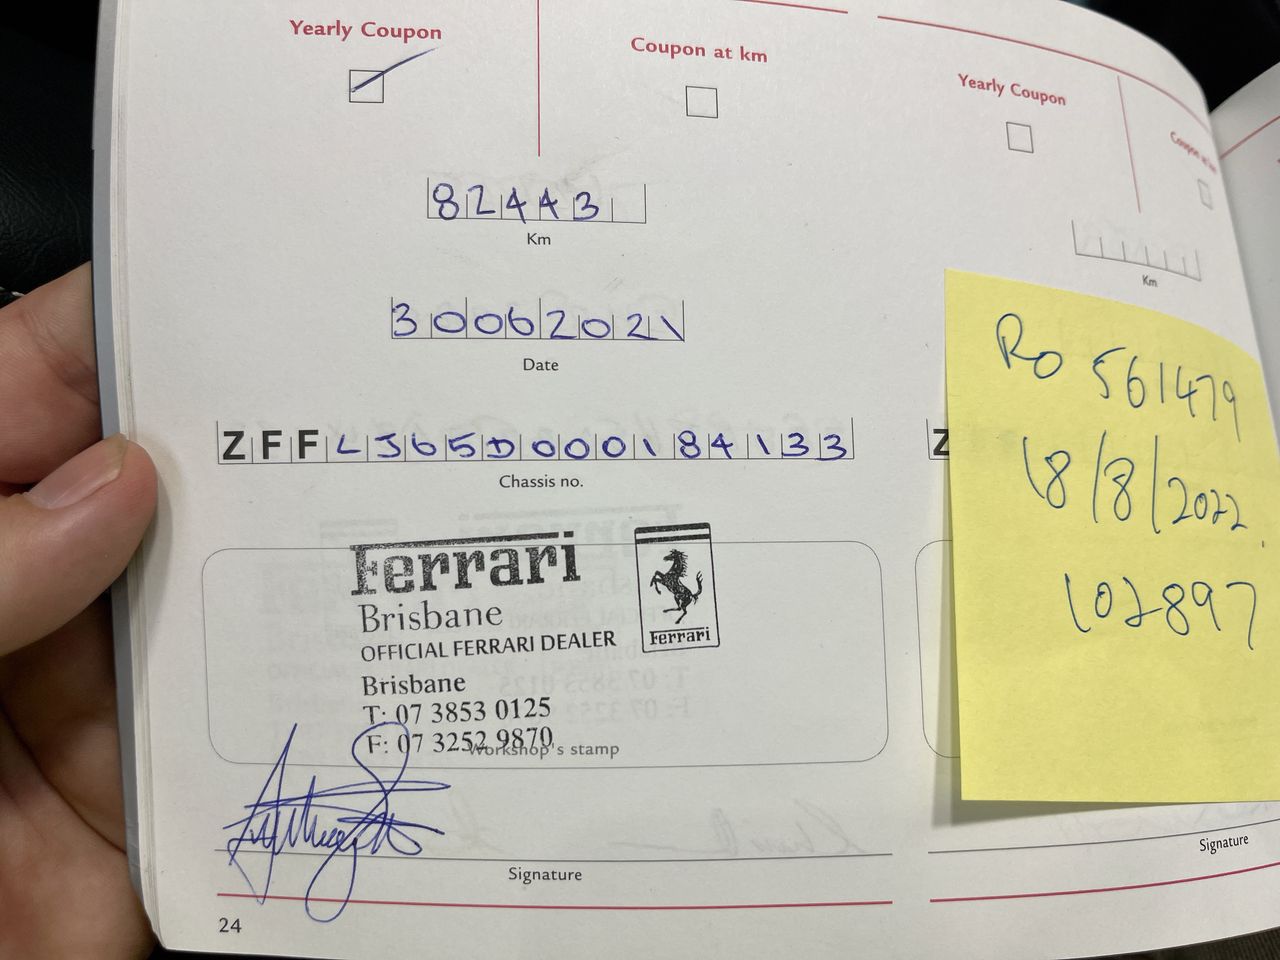 Yearly Coupon
Coupon at km
82443
Km
30062021
Date
ZFFLJ65D000184133
Chassis no.
Ferrari
Brisbane
OFFICIAL FERRARI DEALER
Brisbane
T: 07 3853 0125
F: 07 3252 9870
Ferrari
Workshop's stamp
Signature
24
Yearly Coupon
Coupon at km
Km
Z
RO 561479
18/8/2022
102897
Signature